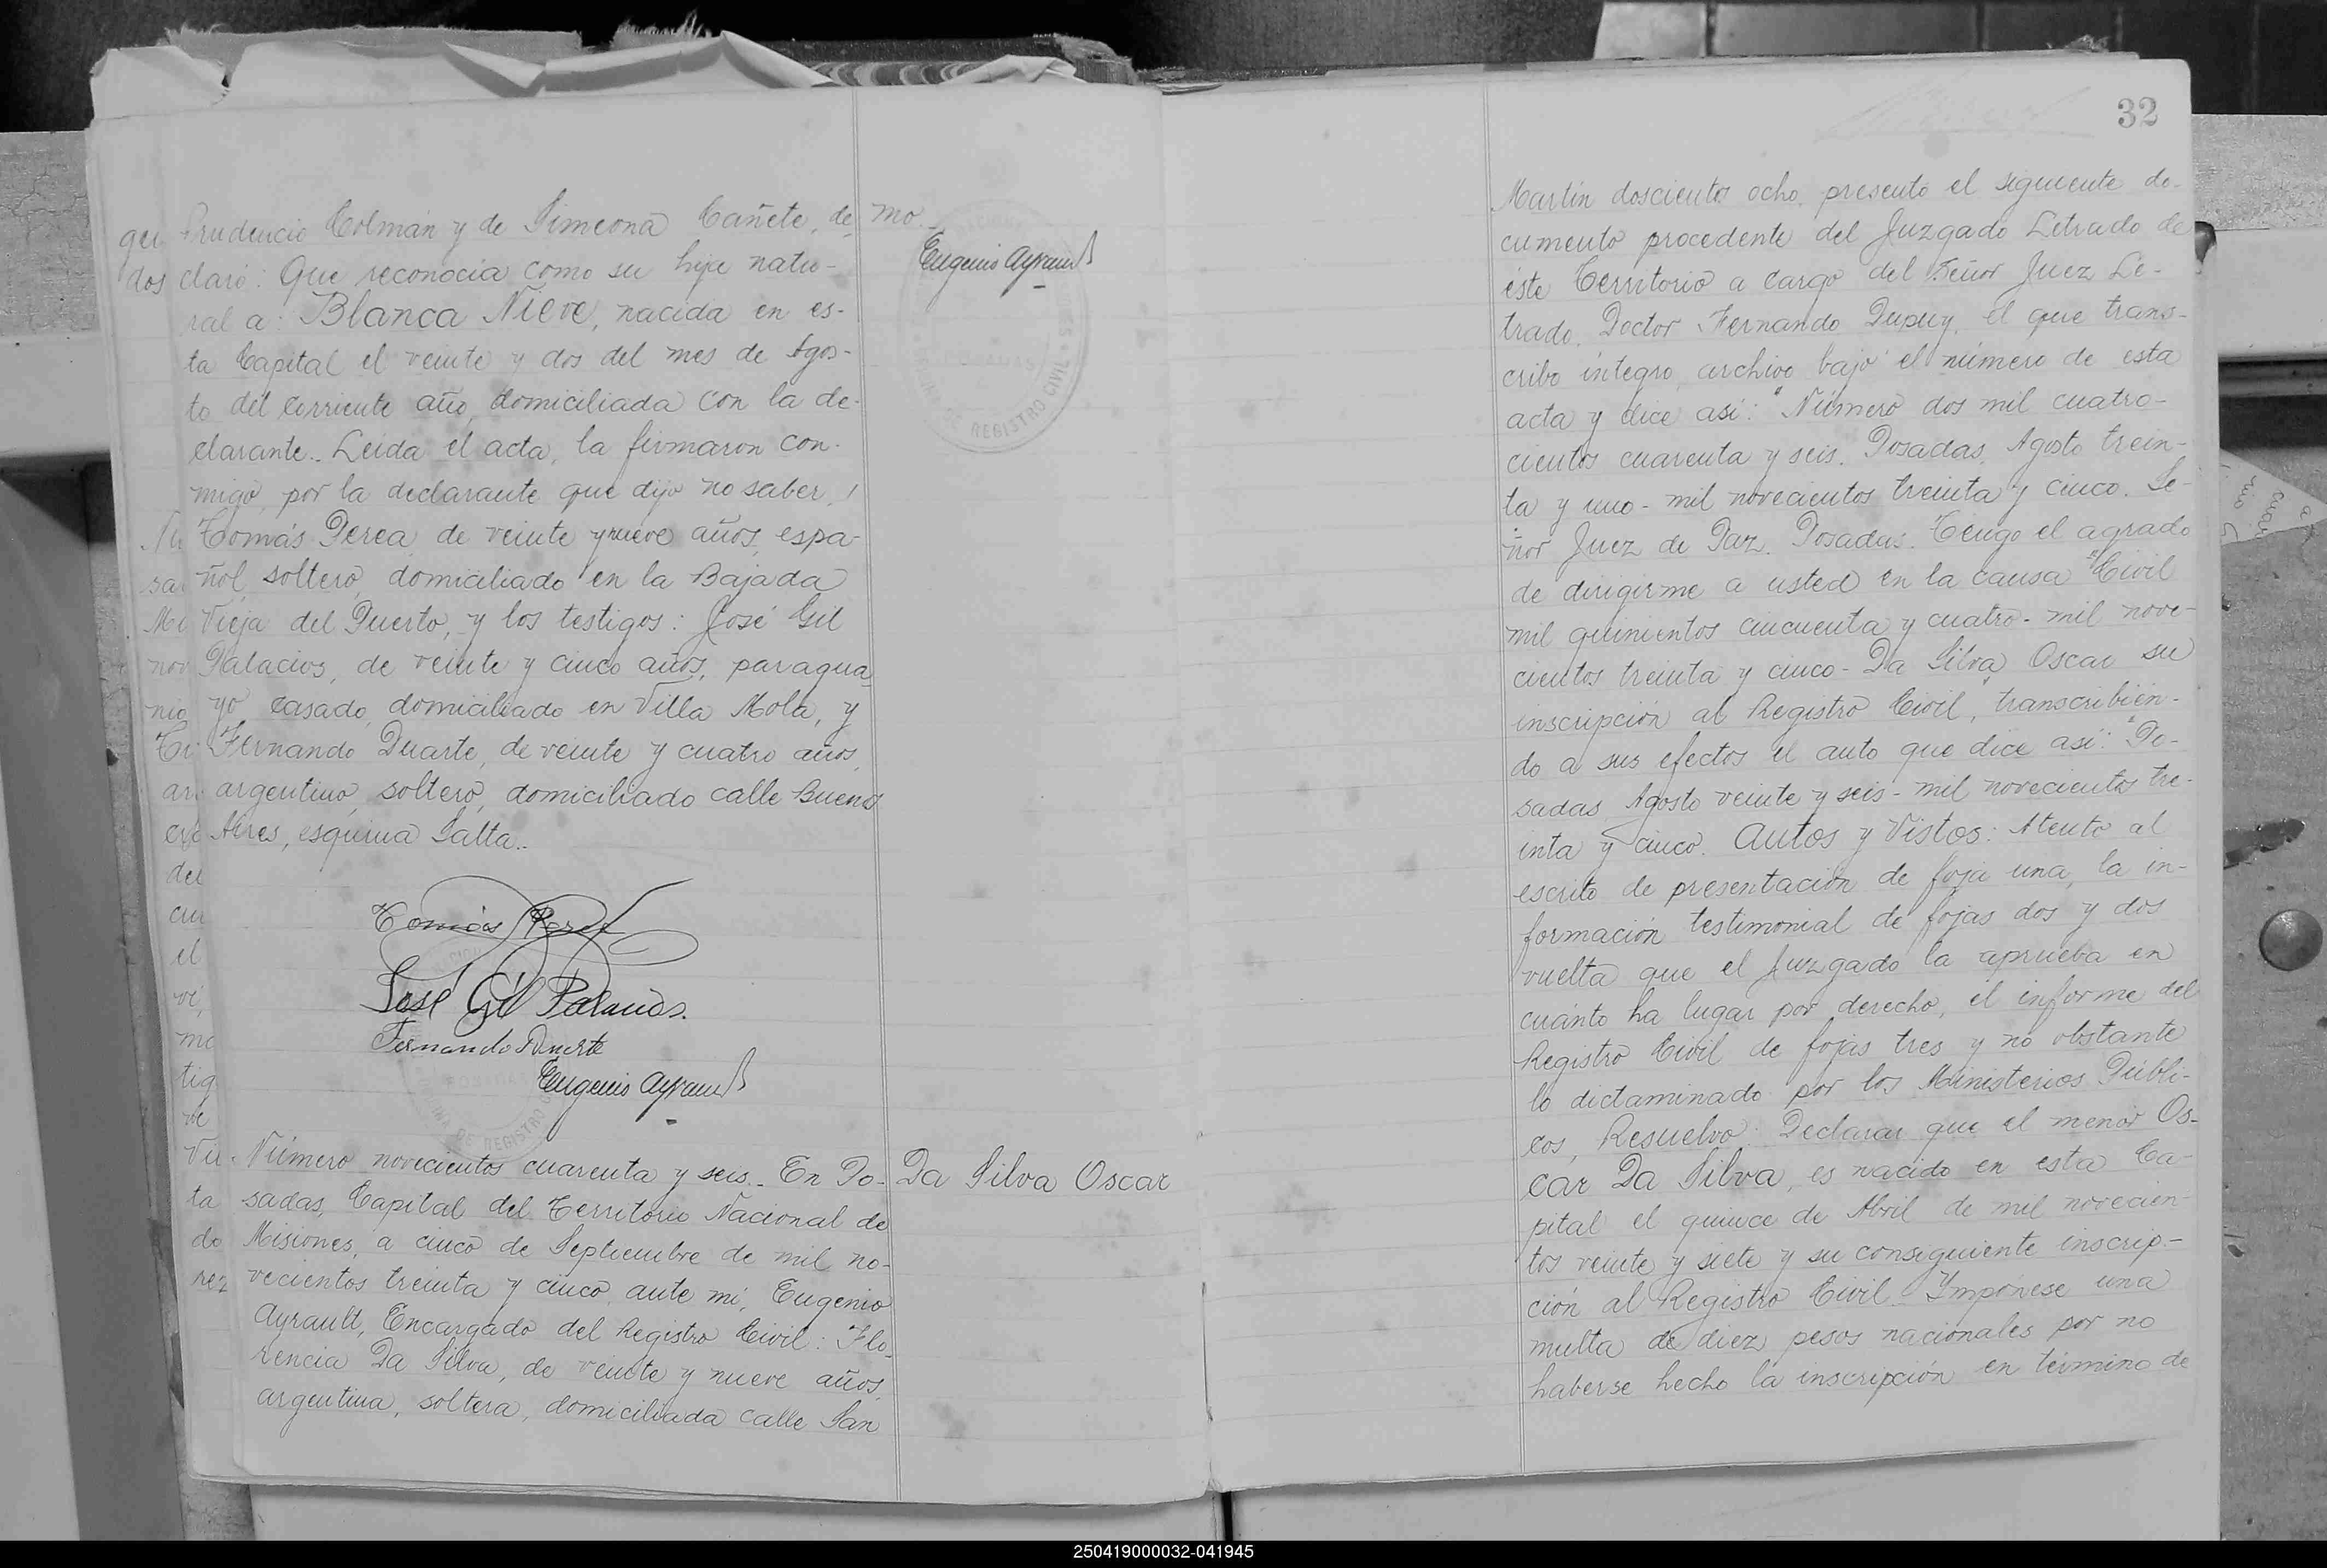 Prudencio Colmán y de Simeona Cañete, de
claró: Que reconocía como su hija natu-
ral a: Blanca Nieve, nacida en es-
ta Capital el veinte y dos del mes de Agos-
to del corriente año, domiciliada con la de-
clarante. Leida el acta, la firmaron con-
migo, por la declarante que dijo no saber,
Tomás Perea, de veinte y nueve años, espa-
ñol, soltero, domiciliado en la Bajada
Vieja del Puerto, y los testigos: José Gil
Palacios, de veinte y cinco años, paragua
yo casado, domiciliado en Villa Mola, y
Fernando Duarte, de veinte y cuatro años,
argentino, soltero, domiciliado calle Buenos
Aires, esquina Salta.
Tomás
José Gil Palacios.
Fernando Duarte
Eugenio Ayrault
mo
Eugenio Ayrault
DE REGISTRO CIVIL
POSADAS
Número novecientos cuarenta y seis. En Po-
sadas, Capital del Territorio Nacional de
Misiones, a cinco de Septiembre de mil no-
vecientos treinta y cinco, ante mí, Eugenio
Ayrault, Encargado del Registro Civil: Flo-
rencia Da Silva, de veinte y nueve años,
argentina, soltera, domiciliada calle San
Da Silva Oscar
32
Martin doscientos ocho, presentó el siguiente do-
cumento procedente del Juzgado Letrado de
éste Territorio a cargo del Señor Juez Le-
trado, Doctor Fernando Dupuy, el que trans-
cribo íntegro, archivo bajo el número de esta
acta y dice así: "Número dos mil cuatro-
cientos cuarenta y seis. Posadas, Agosto trein-
ta y uno - mil novecientos treinta y cinco. Se-
ñor Juez de Paz. Posadas. Tengo el agrado
de dirigirme a usted en la causa "Civil
mil quinientos cincuenta y cuatro - mil nove-
cientos treinta y cinco - Da Silva Oscar su
inscripción al Registro Civil", transcribien-
do a sus efectos el auto que dice así: "Po-
sadas, Agosto veinte y seis - mil novecientos tre-
inta y cinco. Autos y Vistos: Atento al
escrito de presentación de foja una, la in-
formación testimonial de fojas dos y dos
vuelta que el Juzgado la aprueba en
cuánto ha lugar por derecho, el informe del
Registro Civil de fojas tres y no obstante
lo dictaminado por los Ministerios Públi-
cos, Resuelvo: Declarar que el menor Os-
car Da Silva, es nacido en esta Ca-
pital el quince de Abril de mil novecien-
tos veinte y siete y su consiguiente inscrip-
ción al Registro Civil. Impónese una
multa de diez pesos nacionales por no
haberse hecho la inscripción en término de
250419000032-041945